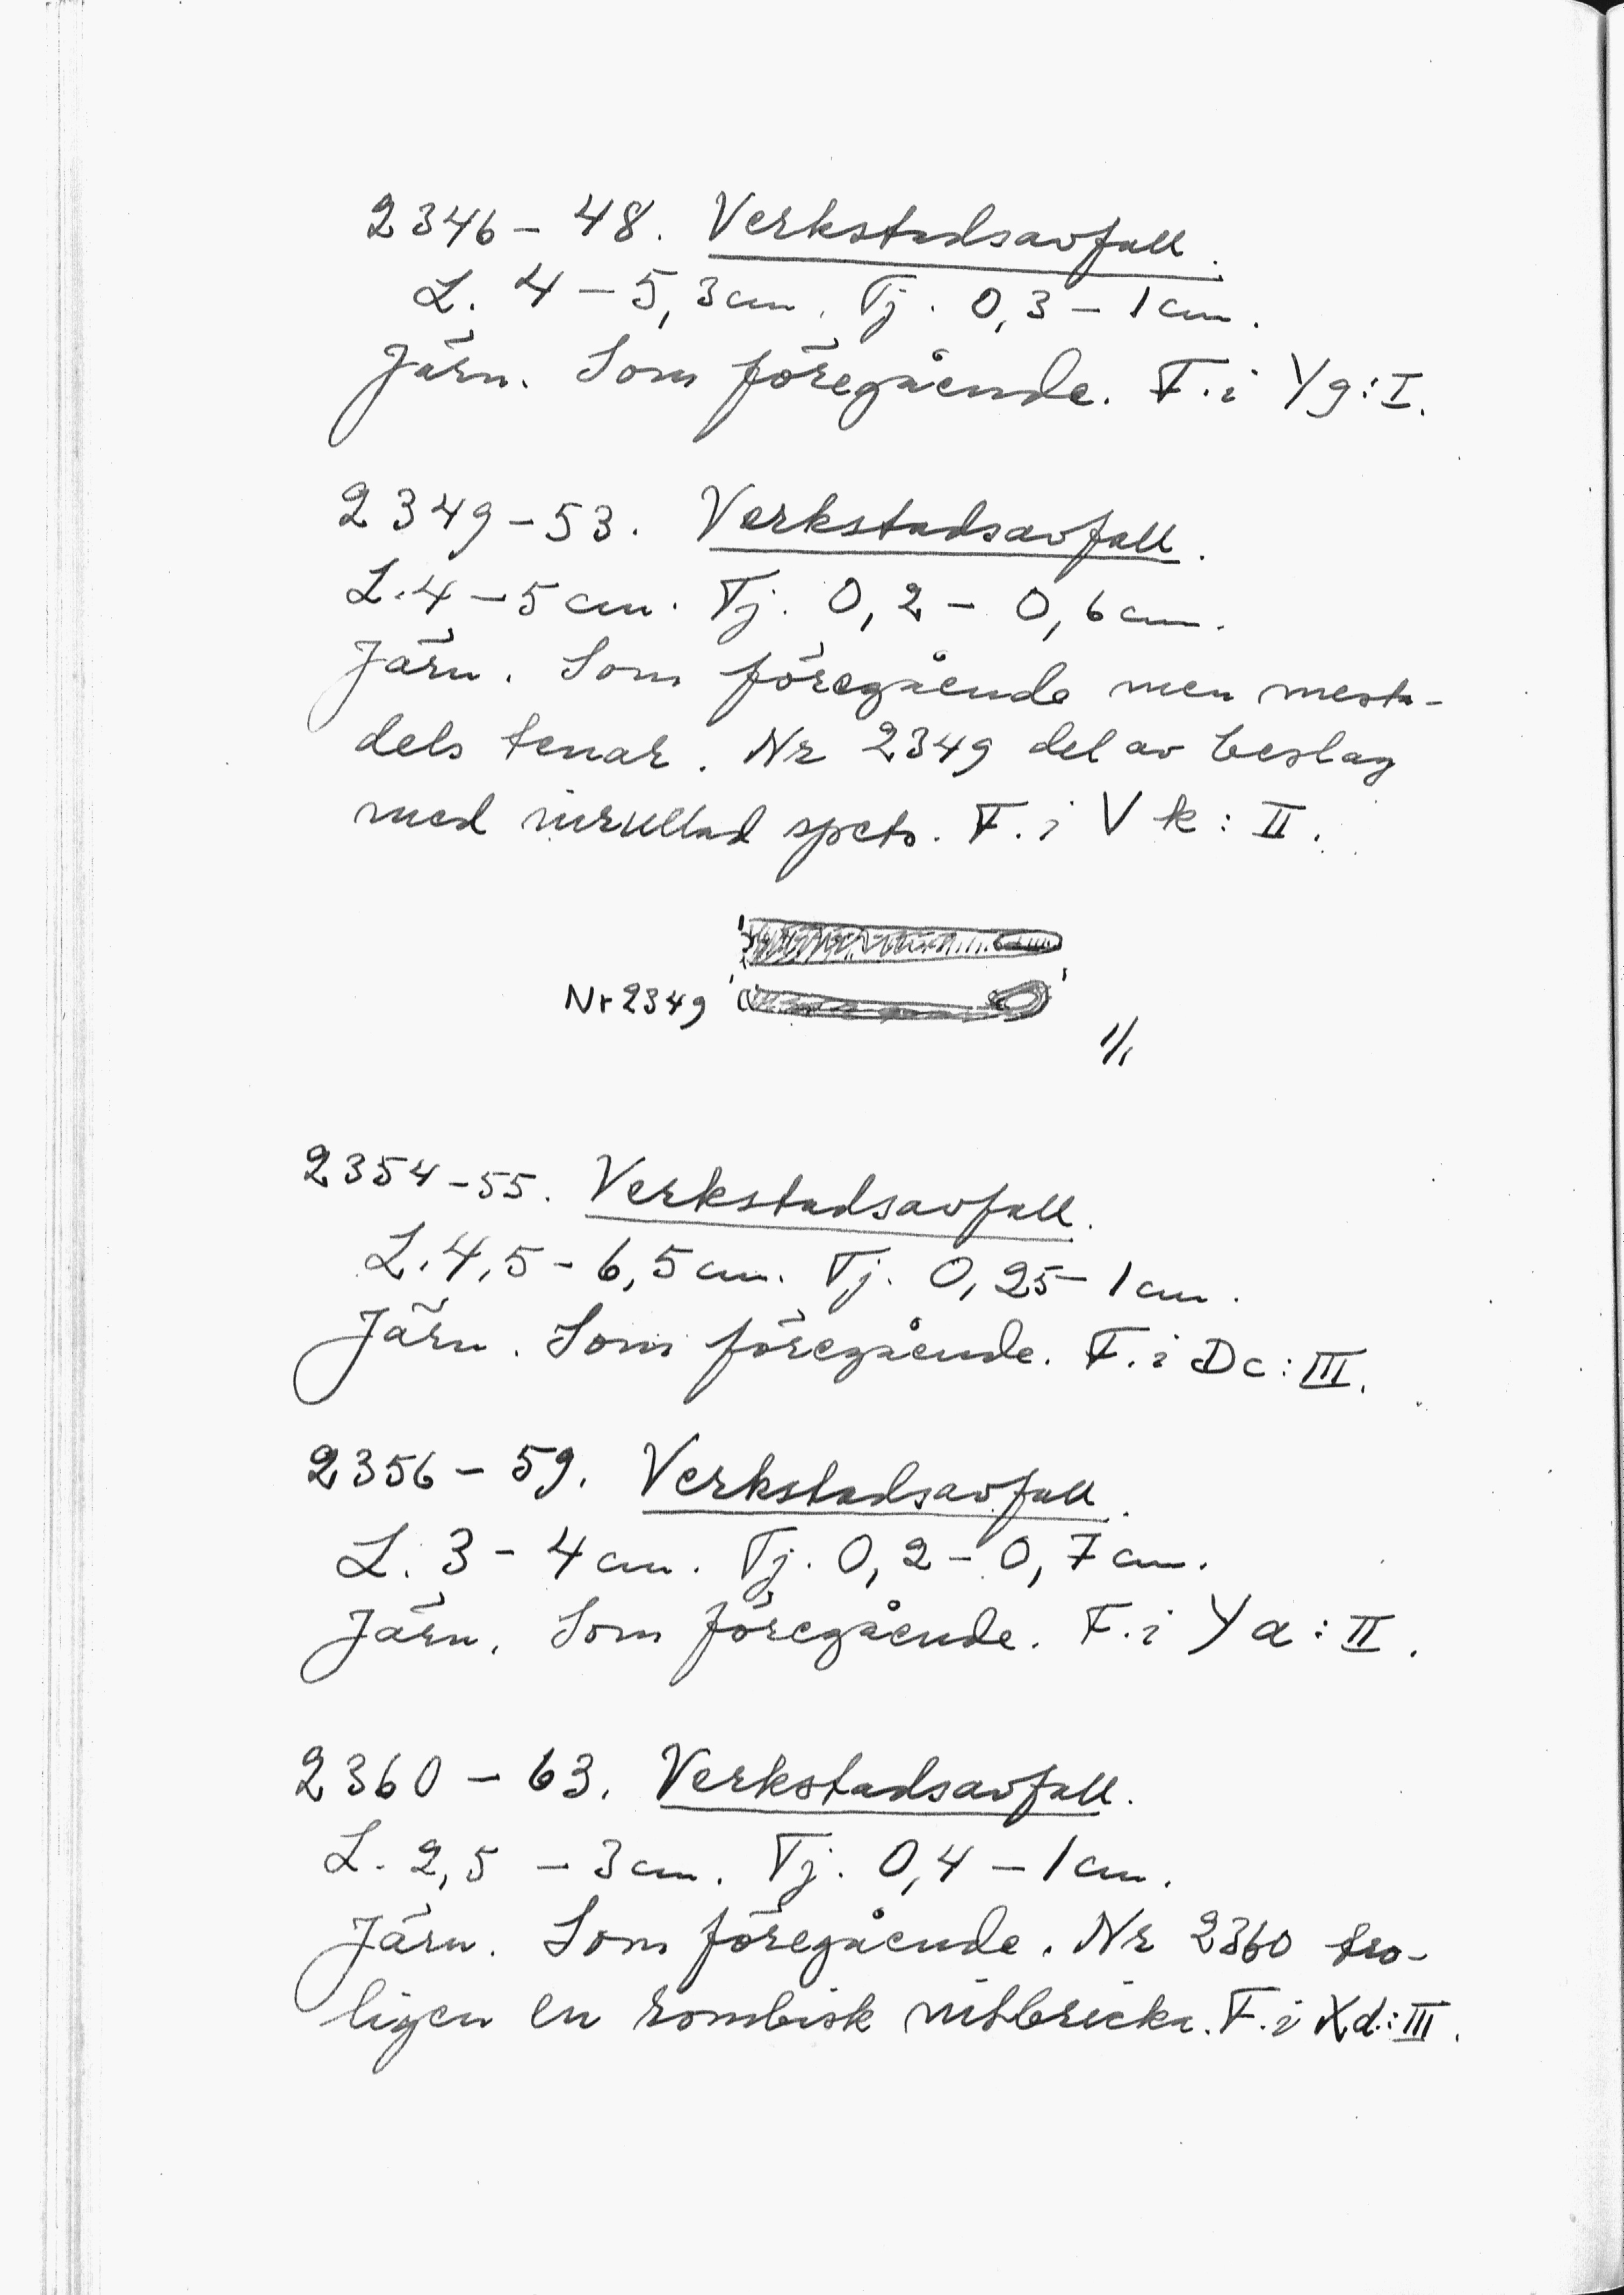 2346 – 48. Verkstadsavfall.
L. 4 – 5,3 cm. Tj. 0,3 – 1 cm.
Järn. Som föregående. F. i Yg: I.
2349 – 53. Verkstadsavfall.
L. 4 – 5 cm. Tj. 0,2 – 0,6 cm.
Järn. Som föregående men mesta-
dels tenar. Nr 2349 del av beslag
med inrullad spets. F. i Vk: II.
Nr 2349
1/1
2354 – 55. Verkstadsavfall.
L. 4,5 – 6,5 cm. Tj. 0,25 – 1 cm.
Järn. Som föregående. F. i Dc: III.
2356 – 59. Verkstadsavfall.
L. 3 – 4 cm. Tj. 0,2 – 0,7 cm.
Järn. Som föregående. F. i Ya: II.
2360 – 63. Verkstadsavfall.
L. 2,5 – 3 cm. Tj. 0,4 – 1 cm.
Järn. Som föregående. Nr 2360 tro-
ligen en rombisk nitbricka. F. i Xd: III.